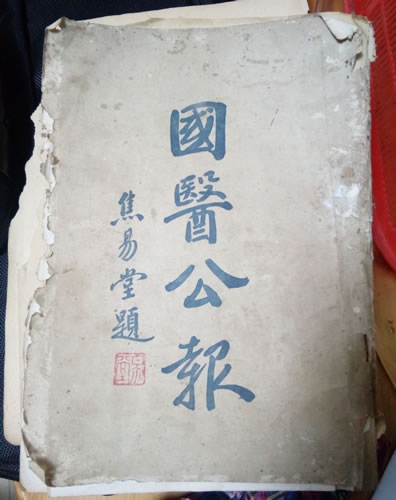 國醫公報
焦易堂題